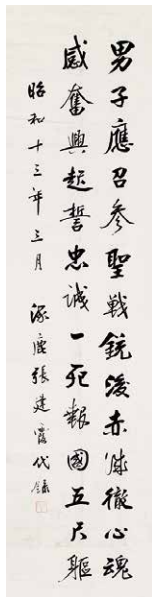 男子應召參聖戦鋭後赤誠徹心魂
感奮興起誓忠誠一死報國五尺軀
昭和十三年三月 涿鹿張建霄代録